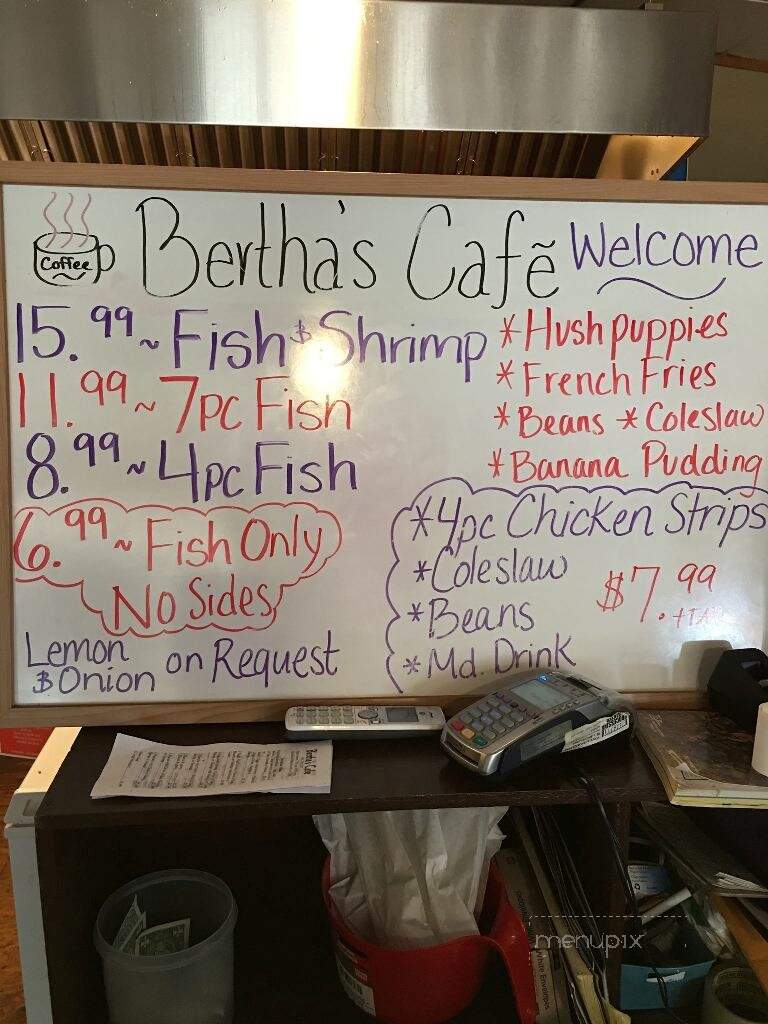 Coffee
Bertha's Cafẽ
Welcome
15.99 ~ Fish & Shrimp
11.99 ~ 7pc Fish
8.99 ~ 4pc Fish
6.99 ~ Fish Only
No Sides
Lemon
& Onion on Request
* Hushpuppies
* French Fries
* Beans * Coleslaw
* Banana Pudding
* 4pc Chicken Strips
* Coleslaw
* Beans
* Md. Drink
$7.99
+TAX
Bertha's Cafe
menupix